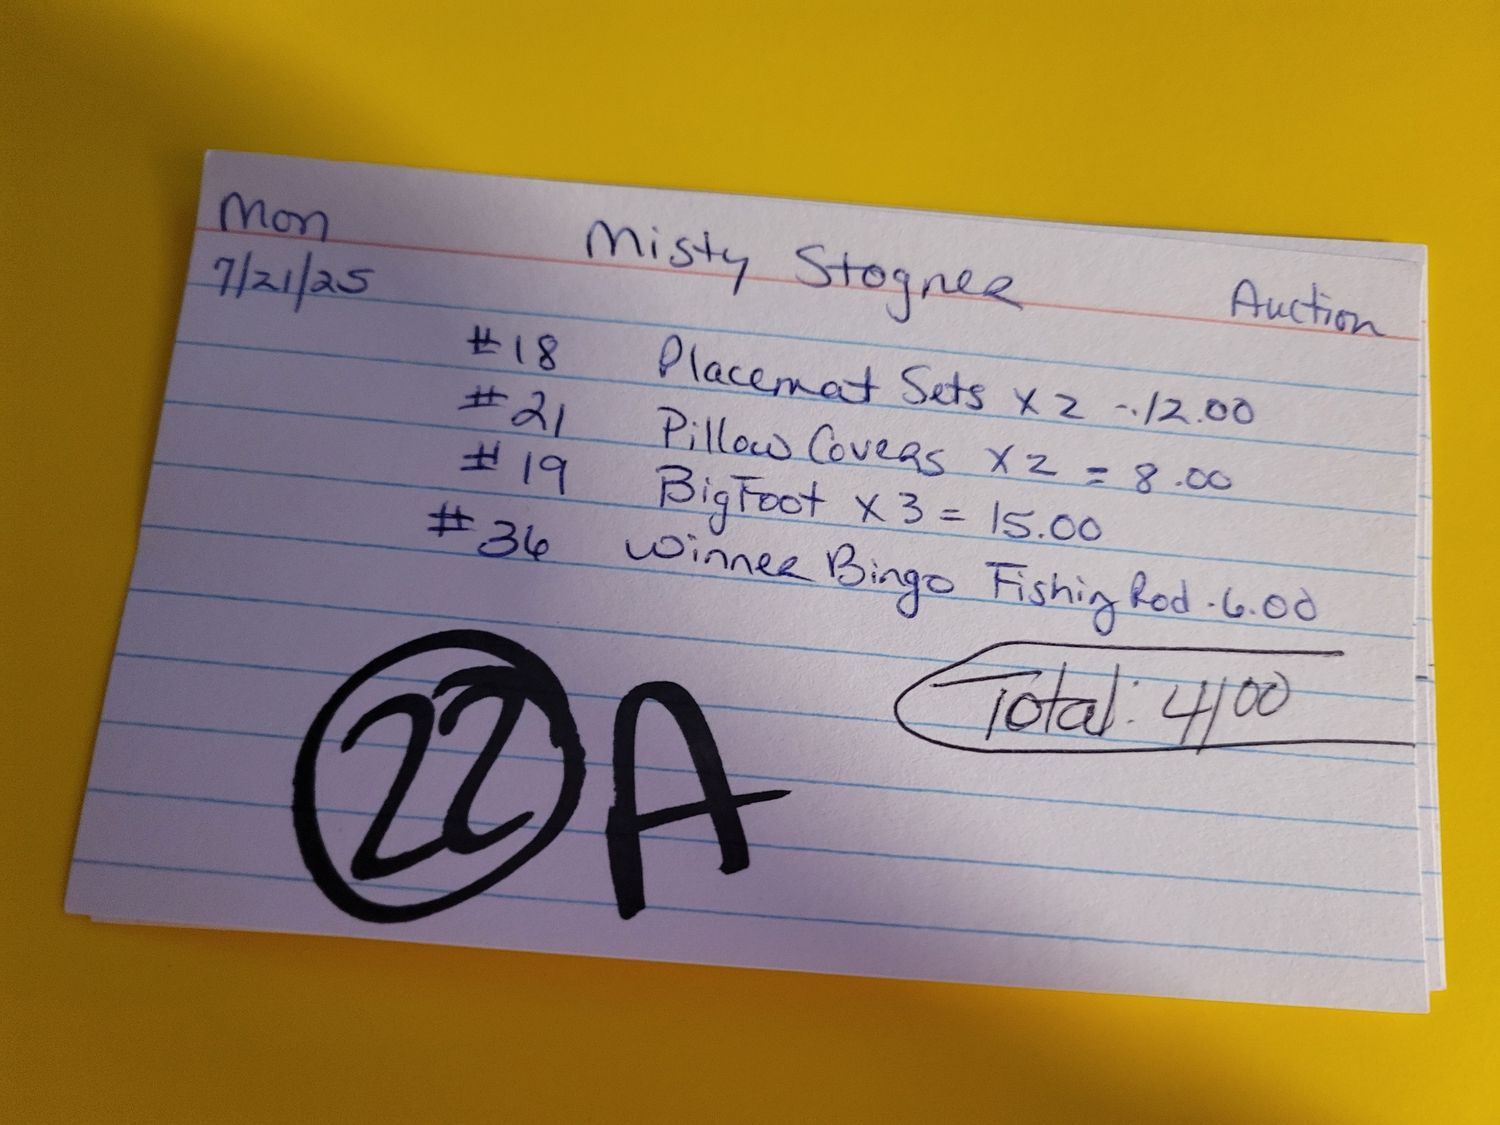 Mon Misty Stogner Auction
7/21/25
#18 Placemat Sets x 2 -.12.00
#21 Pillow Covers x 2 = 8.00
#19 BigFoot x 3 = 15.00
#36 Winner Bingo Fishing Rod . 6.00
Total: 4100
22 A